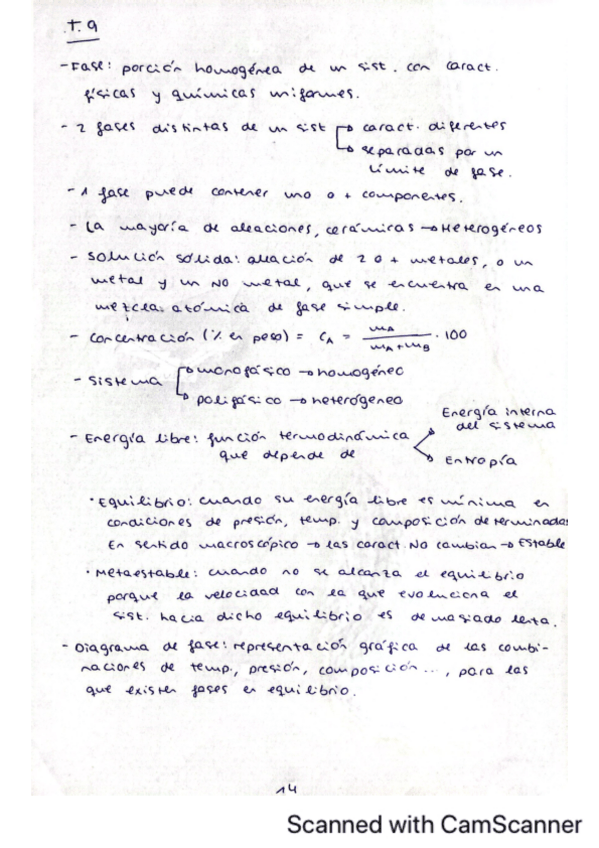 T. 9
- Fase: porción homogénea de un sist. con caract.
físicas y químicas uniformes.
- 2 fases distintas de un sist → caract. diferentes
→ separadas por un
límite de fase.
- 1 fase puede contener uno o + componentes.
- La mayoría de aleaciones, cerámicas → Heterogéneos
- Solución sólida: aleación de 2 o + metales, o un
metal y un NO metal, que se encuentra en una
mezcla atómica de fase simple.
- Concentración (% en peso) = CA = mA / (mA + mB) · 100
- Sistema → monofásico → homogéneo
→ polifásico → heterogéneo
- Energía libre: función termodinámica que depende de
Energía interna
del sistema
Entropía
· Equilibrio: cuando su energía libre es mínima en
condiciones de presión, temp. y composición determinadas
En sentido macroscópico → las caract. No cambian → Estable
· Metaestable: cuando no se alcanza el equilibrio
porque la velocidad con la que evoluciona el
sist. hacia dicho equilibrio es demasiado lenta.
- Diagrama de fase: representación gráfica de las combi-
naciones de temp., presión, composición ..., para las
que existen fases en equilibrio.
14
Scanned with CamScanner